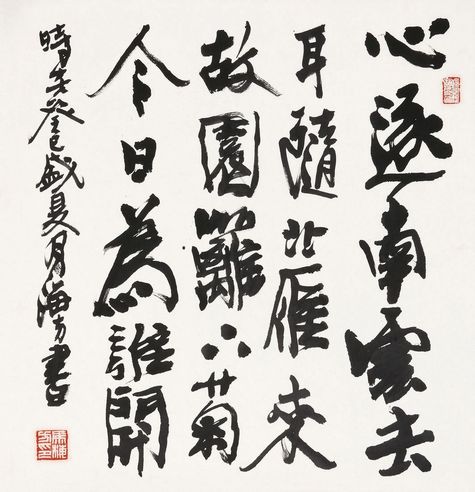 心逐南雲去
耳隨北雁來
故園籬下菊
今日為誰開
時在癸巳盛夏月海方書